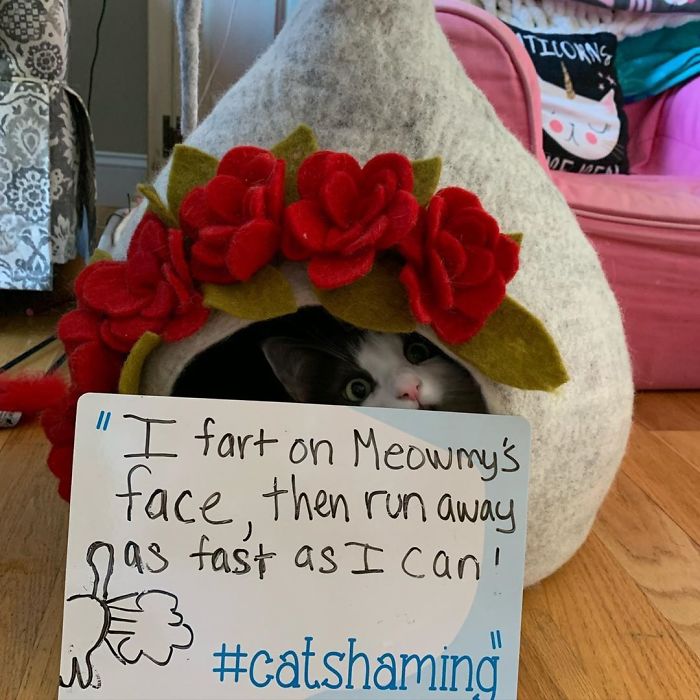 TICORNS
" I fart on Meowmy's
face, then run away
as fast as I can!
#catshaming"